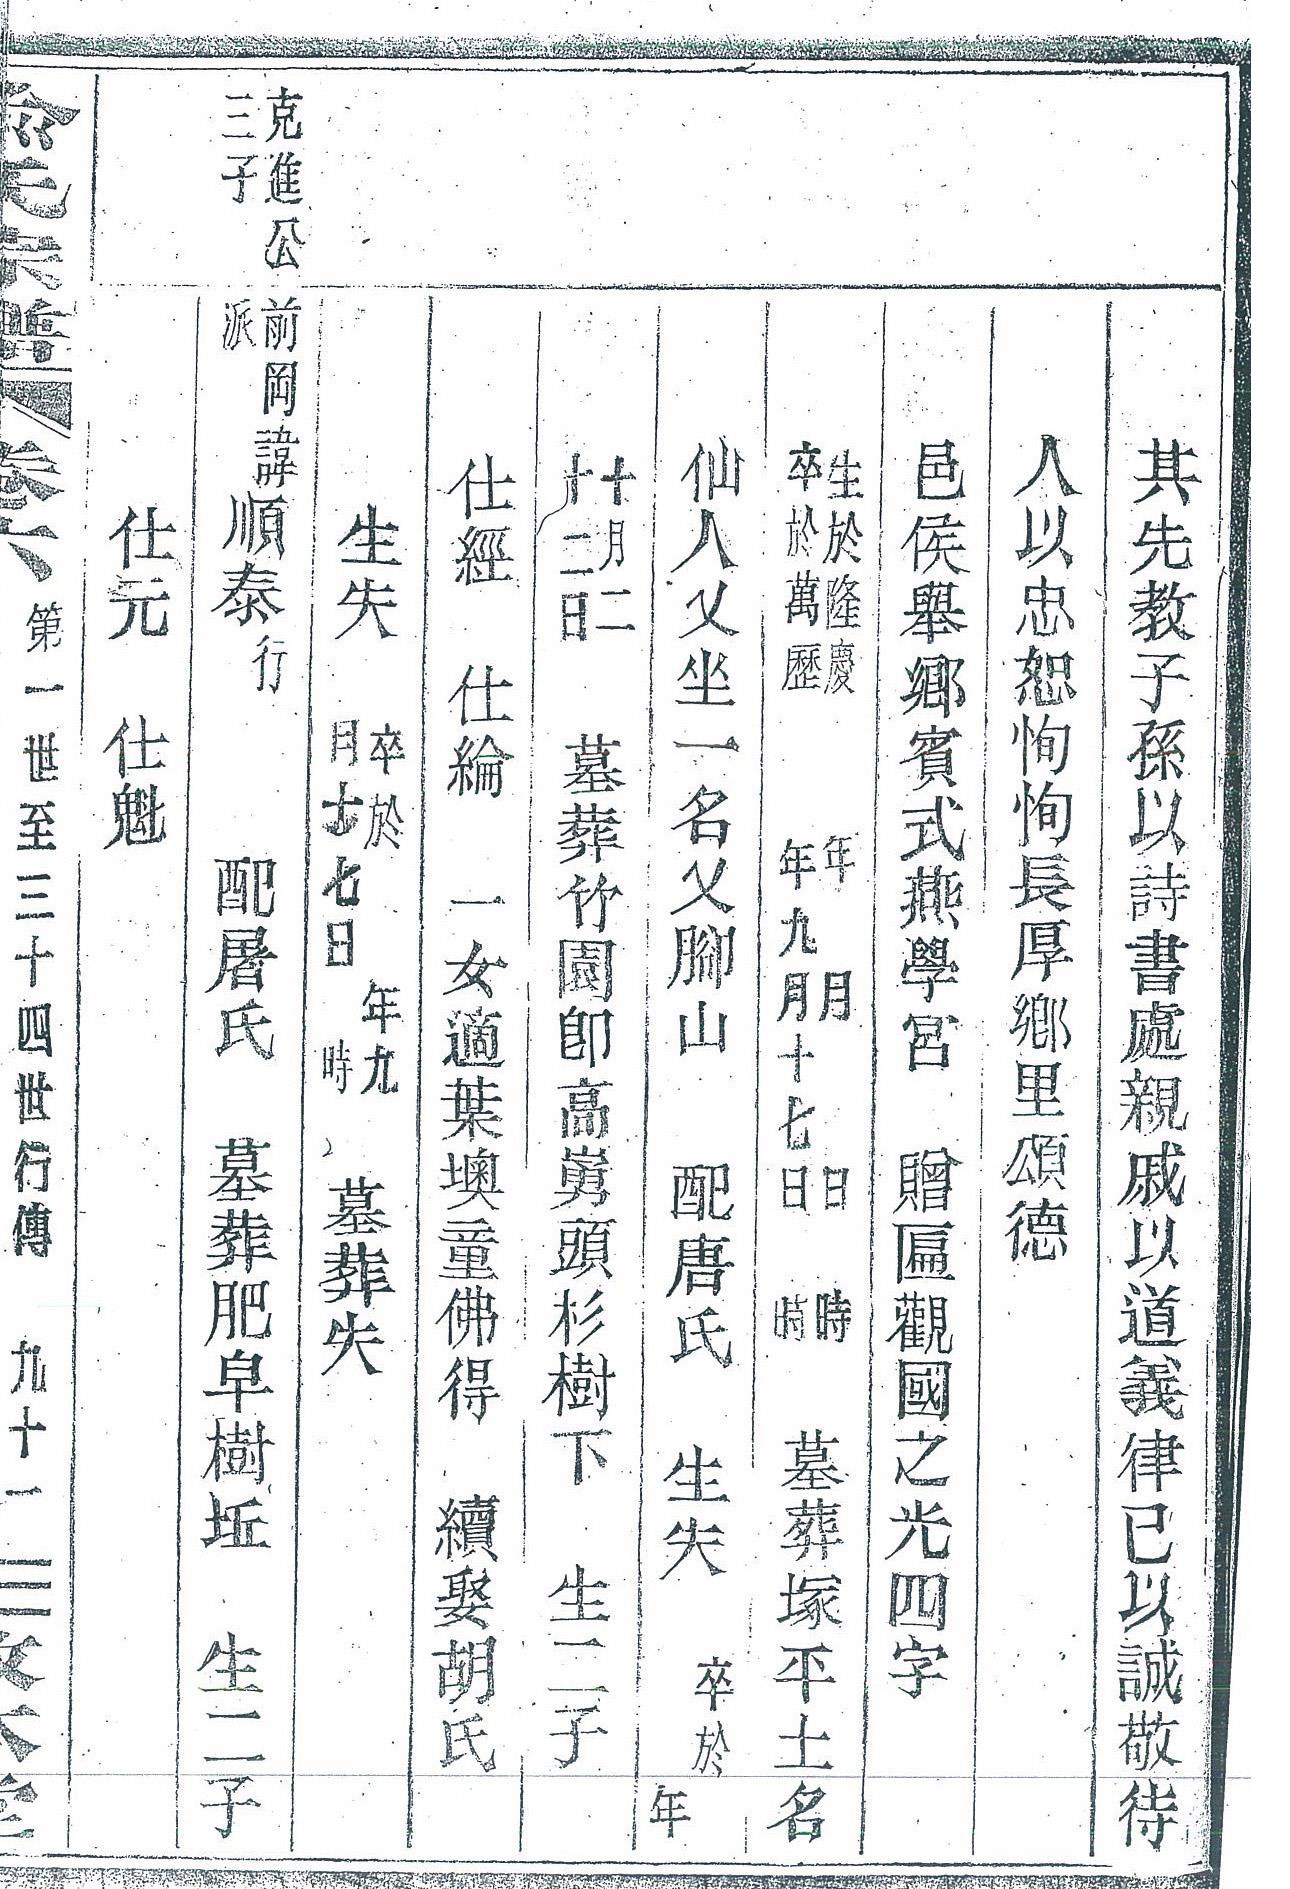 其先教子孫以詩書處親戚以道義律已以誠敬待
人以忠恕恂恂長厚鄉里頌德
邑侯舉鄉賓式燕學宮　贈匾觀國之光四字
生於隆慶　年　月　日　時
卒於萬歷　年九月十七日　時
墓葬塚平土名
仙人乂坐一名乂腳山　配唐氏　生失　卒於　年
十月二
十二日
墓葬竹園卽高嶴頭杉樹下　生二子
仕經　仕綸　一女適葉墺童佛得　續娶胡氏
生失　卒於　年九
月十七日　時
墓葬失
克進公
三子
前岡
派
諱順泰行　配屠氏　墓葬肥皁樹坵　生二子
仕元　仕魁
氏宗譜　卷六　第一世至三十四世行傳　九十一